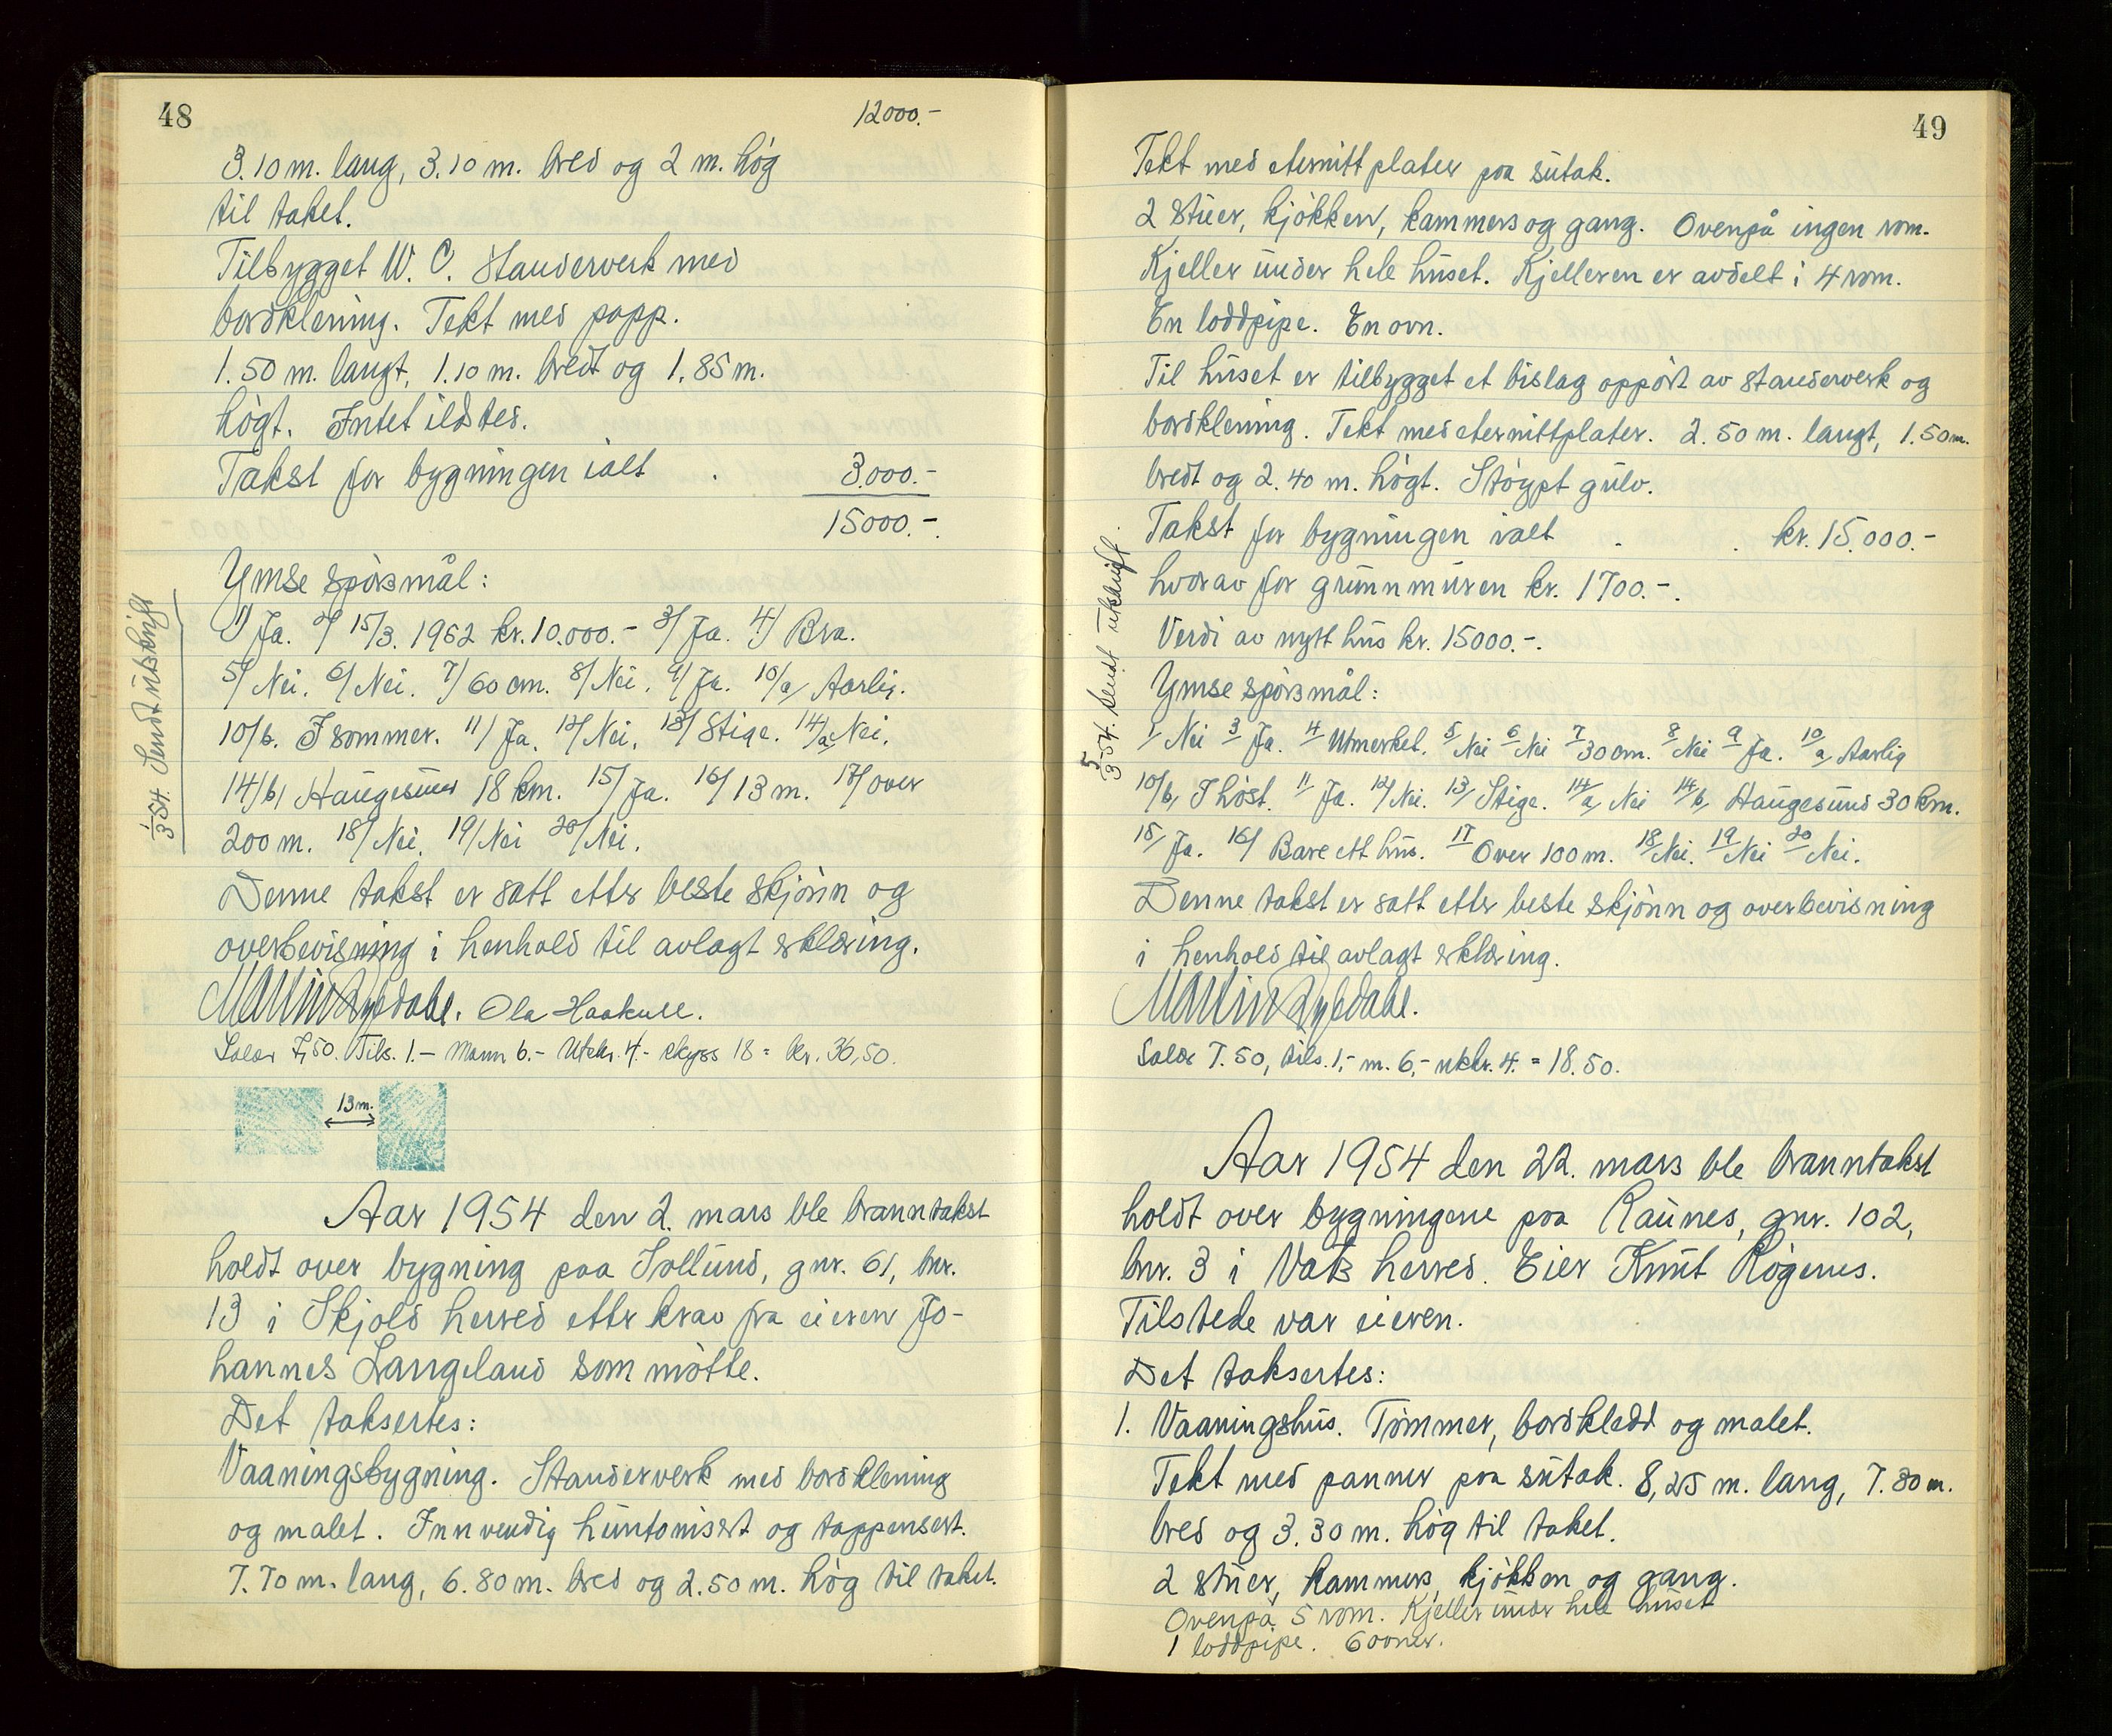 48
12000.-
3.10 m. lang, 3.10 m. bred og 2 m. høg
til taket.
Tilbygget W. C. Standerverk med
bordklening. Tekt med papp.
1.50 m. langt, 1.10 m. bredt og 1.85 m.
høgt. Intet ildsted.
Takst for bygningen ialt . 3.000.-
15000.-
Ymse spørsmål:
1/ Ja. 2/ 15/3. 1962 kr. 10.000.- 3/ Ja. 4/ Bra.
5/ Nei. 6/ Nei. 7/ 60 cm. 8/ Nei. 9/ Ja. 10/a/ Aarlig.
10/b. I sommer. 11/ Ja. 12/ Nei. 13/ Stige. 14/a/ Nei.
14/b/ Haugesund 18 km. 15/ Ja. 16/ 13 m. 17/ over
200 m. 18/ Nei. 19/ Nei 20/ Nei.
Denne takst er satt etter beste skjønn og
overbevisning i henhold til avlagt erklæring.
Martin Opedahl. Ola Haakull.
Salær 7,50. Tils. 1.- Mann 6.- Utskr. 4.- skyss 18 = kr. 36,50.
1/3 54. Sendt utskrift
13 m.
Aar 1954 den 2. mars ble branntakst
holdt over bygning paa Sollund, gnr. 61, bnr.
13 i Skjold herred etter krav fra eieren Jo-
hannes Langeland som møtte.
Det taksertes:
Vaaningsbygning. Standerverk med bordklening
og malet. Innvendig huntonisert og tappensert.
7.70 m. lang, 6.80 m. bred og 2.50 m. høg til taket.
49
Tekt med eternittplater paa sutak.
2 stuer, kjøkken, kammers og gang. Ovenpå ingen rom.
Kjeller under hele huset. Kjelleren er avdelt i 4 rom.
En loddpipe. En ovn.
Til huset er tilbygget et bislag oppført av standerverk og
bordklening. Tekt med eternittplater. 2.50 m. langt, 1.50 m.
bredt og 2.40 m. høgt. Støypt gulv.
Takst for bygningen ialt . . kr. 15.000.-
hvorav for grunnmuren kr. 1700.-.
Verdi av nytt hus kr. 15000.-.
Ymse spørsmål:
1/ Nei 3/ Ja. 4/ Utmerket. 5/ Nei 6/ Nei 7/ 30 cm. 8/ Nei 9/ Ja. 10/a/ Aarlig
10/b/ I høst. 11/ Ja. 12/ Nei. 13/ Stige. 14/a/ Nei 14/b/ Haugesund 30 km.
15/ Ja. 16/ Bare ett hus. 17/ Over 100 m. 18/ Nei. 19/ Nei 20/ Nei.
Denne takst er satt etter beste skjønn og overbevisning
i henhold til avlagt erklæring.
Martin Opedahl.
Salær 7.50, tils. 1,- m. 6,- utskr. 4. = 18.50.
5/3-54. Sendt utskrift.
Aar 1954 den 22. mars ble branntakst
holdt over bygningene paa Raunes, gnr. 102,
bnr. 3 i Vats herred. Eier Knut Røgenes.
Tilstede var eieren.
Det taksertes:
1. Vaaningshus. Tømmer, bordkledd og malet.
Tekt med panner paa sutak. 8,25 m. lang, 7.30 m.
bred og 3.30 m. høg til taket.
2 stuer, kammers, kjøkken og gang.
Ovenpå 5 rom. Kjeller under hele huset
1 loddpipe. 6 ovner.